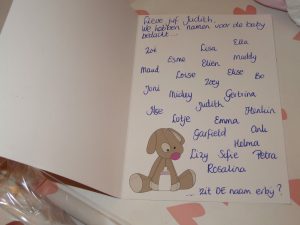 Lieve juf Judith,
We hebben namen voor de baby
bedacht...:
Zoë Lisa Ella
Esmé Elien Maddy
Maud Loïse Elise Bo
Joni Mickey Zoey Gertrina
Ilse Judith Henkin
Lotje Emma Anh
Garfield Helma
Lizy Sofie Petra
Rosalina
... zit DE naam erbij?